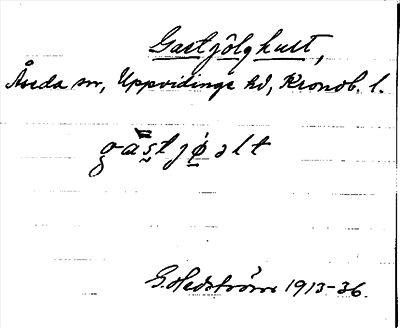 Gastjölghult,
Åseda sn, Uppvidinge hd, Kronob. l.
gàstjølt
G. Hedström 1913-36.